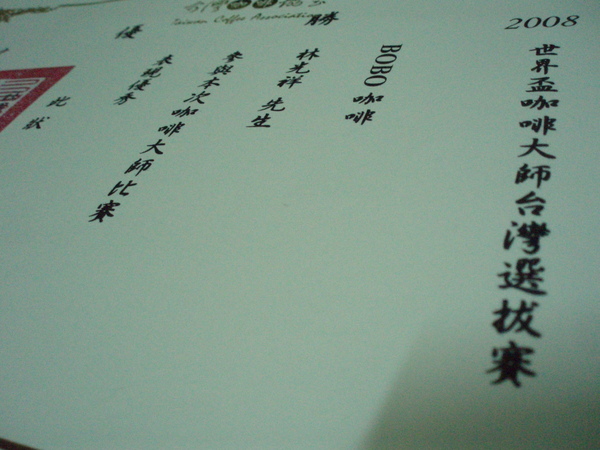 台灣咖啡協會
Taiwan Coffee Association
優勝
2008
世界盃咖啡大師台灣選拔賽
BOBO 咖啡
林光祥 先生
參與本次咖啡大師比賽
表現優秀
此狀